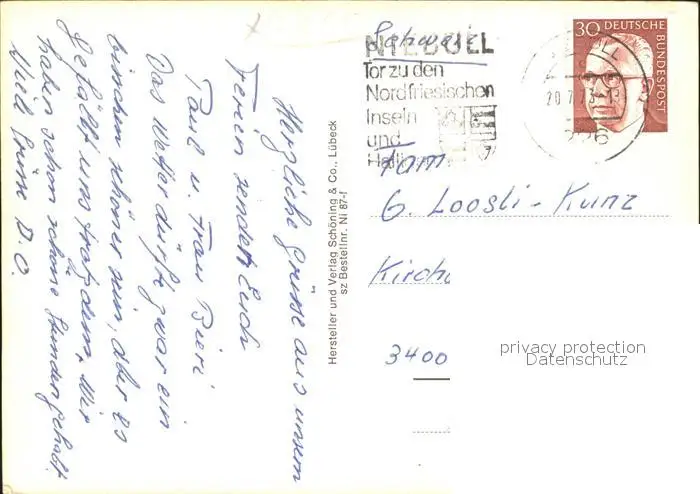 Herzliche Grüsse aus unsern
Ferien sendet Euch
Paul u. Frau Bieri
Das Wetter dürfte zwar ein
bisschen schöner sein, aber es
gefällt uns trotzdem. Wir
haben schon schöne Stunden gehabt.
Viele Grüsse D.O.
Hersteller und Verlag Schöning & Co., Lübeck
sz Bestellnr. Ni 87-f
Schweiz
NIEBÜLL
Tor zu den
Nordfriesischen
Inseln
und
30 DEUTSCHE
BUNDESPOST
20.7.73
226
Fam
G. Loosli-Kunz
Kirch
3400
privacy protection
Datenschutz